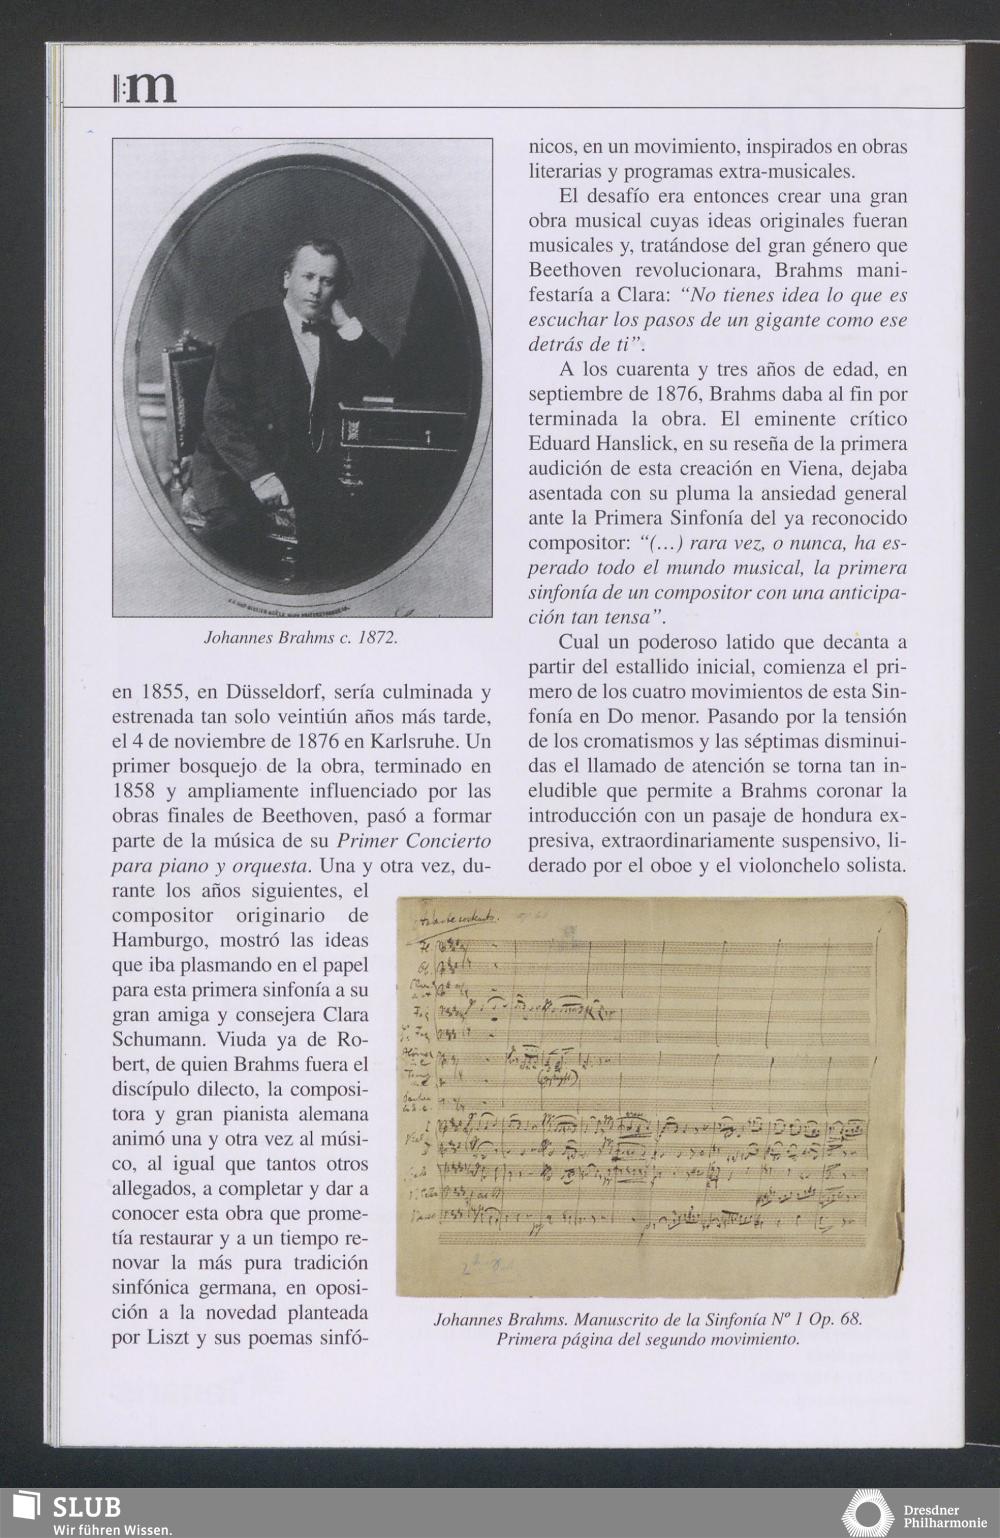 m
Johannes Brahms c. 1872.
en 1855, en Düsseldorf, sería culminada y
estrenada tan solo veintiún años más tarde,
el 4 de noviembre de 1876 en Karlsruhe. Un
primer bosquejo de la obra, terminado en
1858 y ampliamente influenciado por las
obras finales de Beethoven, pasó a formar
parte de la música de su Primer Concierto
para piano y orquesta. Una y otra vez, du-
rante los años siguientes, el
compositor originario de
Hamburgo, mostró las ideas
que iba plasmando en el papel
para esta primera sinfonía a su
gran amiga y consejera Clara
Schumann. Viuda ya de Ro-
bert, de quien Brahms fuera el
discípulo dilecto, la composi-
tora y gran pianista alemana
animó una y otra vez al músi-
co, al igual que tantos otros
allegados, a completar y dar a
conocer esta obra que prome-
tía restaurar y a un tiempo re-
novar la más pura tradición
sinfónica germana, en oposi-
ción a la novedad planteada
por Liszt y sus poemas sinfó-
nicos, en un movimiento, inspirados en obras
literarias y programas extra-musicales.
El desafío era entonces crear una gran
obra musical cuyas ideas originales fueran
musicales y, tratándose del gran género que
Beethoven revolucionara, Brahms mani-
festaría a Clara: “No tienes idea lo que es
escuchar los pasos de un gigante como ese
detrás de ti”.
A los cuarenta y tres años de edad, en
septiembre de 1876, Brahms daba al fin por
terminada la obra. El eminente crítico
Eduard Hanslick, en su reseña de la primera
audición de esta creación en Viena, dejaba
asentada con su pluma la ansiedad general
ante la Primera Sinfonía del ya reconocido
compositor: “(…) rara vez, o nunca, ha es-
perado todo el mundo musical, la primera
sinfonía de un compositor con una anticipa-
ción tan tensa”.
Cual un poderoso latido que decanta a
partir del estallido inicial, comienza el pri-
mero de los cuatro movimientos de esta Sin-
fonía en Do menor. Pasando por la tensión
de los cromatismos y las séptimas disminui-
das el llamado de atención se torna tan in-
eludible que permite a Brahms coronar la
introducción con un pasaje de hondura ex-
presiva, extraordinariamente suspensivo, li-
derado por el oboe y el violonchelo solista.
Andante sostenuto.
Johannes Brahms. Manuscrito de la Sinfonía Nº 1 Op. 68.
Primera página del segundo movimiento.
SLUB
Wir führen Wissen.
Dresdner
Philharmonie